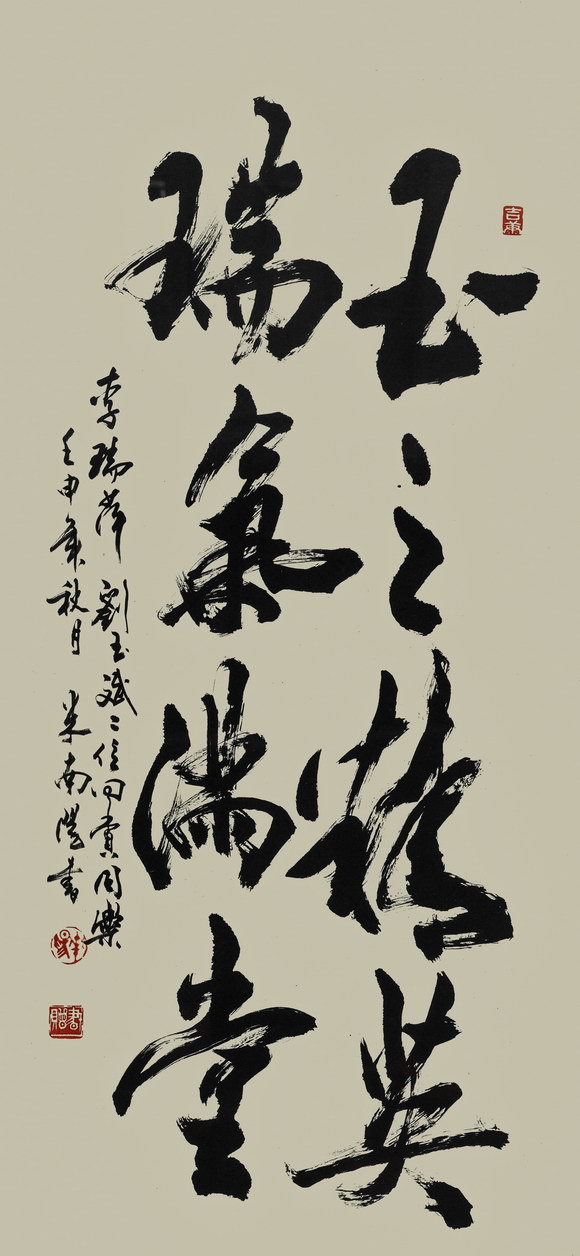 玉之精英
瑞氣滿堂
李瑞萍 劉玉斌二位同賞同樂
壬申年秋月 米南陽書
書贈